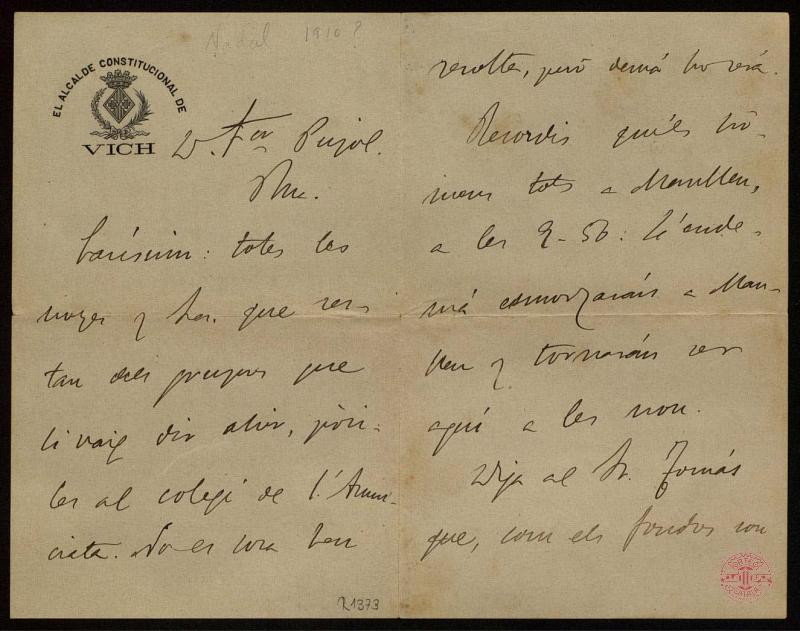 Nadal 1910?
EL ALCALDE CONSTITUCIONAL DE
VICH
D. Fer Pujol.
Carissim: totes les
noyes y Sra. que res-
tan dels grupos que
li vaig dir ahir,
les al colegi de l'Anun-
ciata. No es cosa ben
resolta, però demá ho será.
Recordis qu'els hò-
mens tots a Manlleu,
a les 9-56: L'ende-
má esmorzarán a Man-
lleu y tornarán ser
aquí a les nou.
Diga al Sr. Tomás
que, com els fondos son
R1373
ORFEÓ
CATALÀ